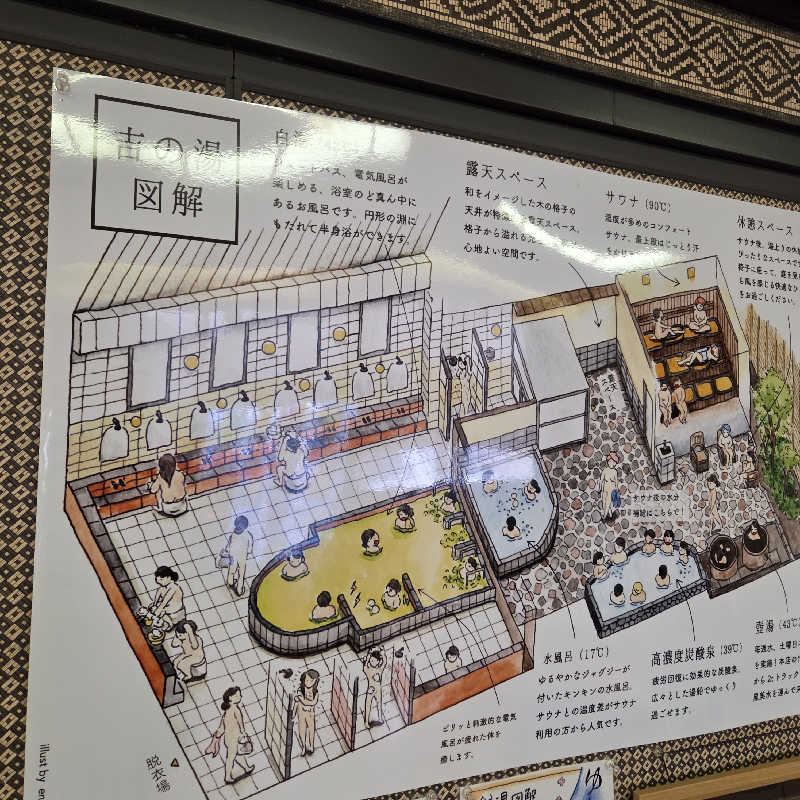 吉の湯
図解
電気風呂が
楽しめる、浴室のど真ん中に
あるお風呂です。円形の淵に
もたれて半身浴ができます。
露天スペース
和をイメージした木の格子の
天井が
格子から溢れる
心地よい空間です。
サウナ (90℃)
湿度が多めのコンフォート
サウナ。最上段はじっとり汗
休憩スペース
サウナ後、湯上りの休憩
ぴったりなスペースです
椅子に座って、庭を見な
も風を感じる快適なひ
をお過ごしください。
サウナ後の水分
補給はこちらで!
水風呂 (17℃)
ゆるやかなジャグジーが
付いたキンキンの水風呂。
サウナとの温度差がサウナ
利用の方から人気です。
高濃度炭酸泉 (39℃)
疲労回復に効果的な炭酸泉。
広々とした湯船でゆっくり
過ごせます。
壺湯 (43℃)
毎週水、土曜日に
を実施!本店の
から2tトラック
ピリッと刺激的な電気
風呂が疲れた体を
癒します。
脱衣場
illust by en
湯図解
ゆ